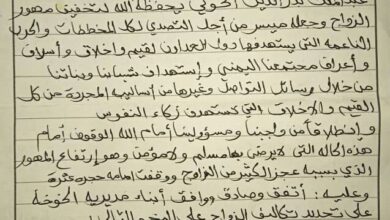 عبدالملك بدر الدين الحوثي يحفظه الله لتخفيض مهور
الزواج وجعله ميسر من أجل التصدي لكل المخططات والحرب
الناعمة التي يستهدفها دول العدوان لقيم واخلاق وأسلاف
وأعراف مجتمعنا اليمني وإستهداف شبابنا وبناتنا
من خلال وسائل التواصل وغيرها من أساليبه المجردة من كل
القيم والاخلاق التي تستهدف زكاء النفوس
وإنطلاقاً من واجبنا ومسؤوليتنا أمام الله الوقوف أمام
هذه الحاله التي لايرضى بها مسلم ولا مؤمن وهو إرتفاع المهور
الذي بسببه عجز الكثير من الزواج ووقفت امامه حجر عثرة
وعليه : أتفق وصادق ووافق أبناء مديرية الخوخة
على تحديد تكاليف الزواج على النحو التالي